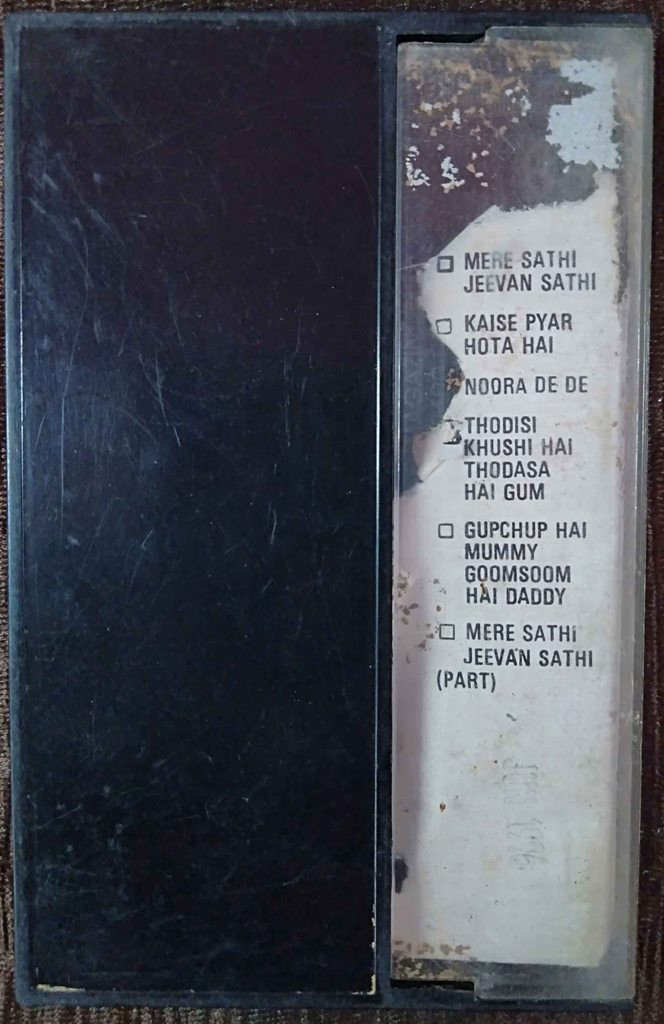 MERE SATHI
JEEVAN SATHI
KAISE PYAR
HOTA HAI
NOORA DE DE
THODISI
KHUSHI HAI
THODASA
HAI GUM
GUPCHUP HAI
MUMMY
GOOMSOOM
HAI DADDY
MERE SATHI
JEEVAN SATHI
(PART)